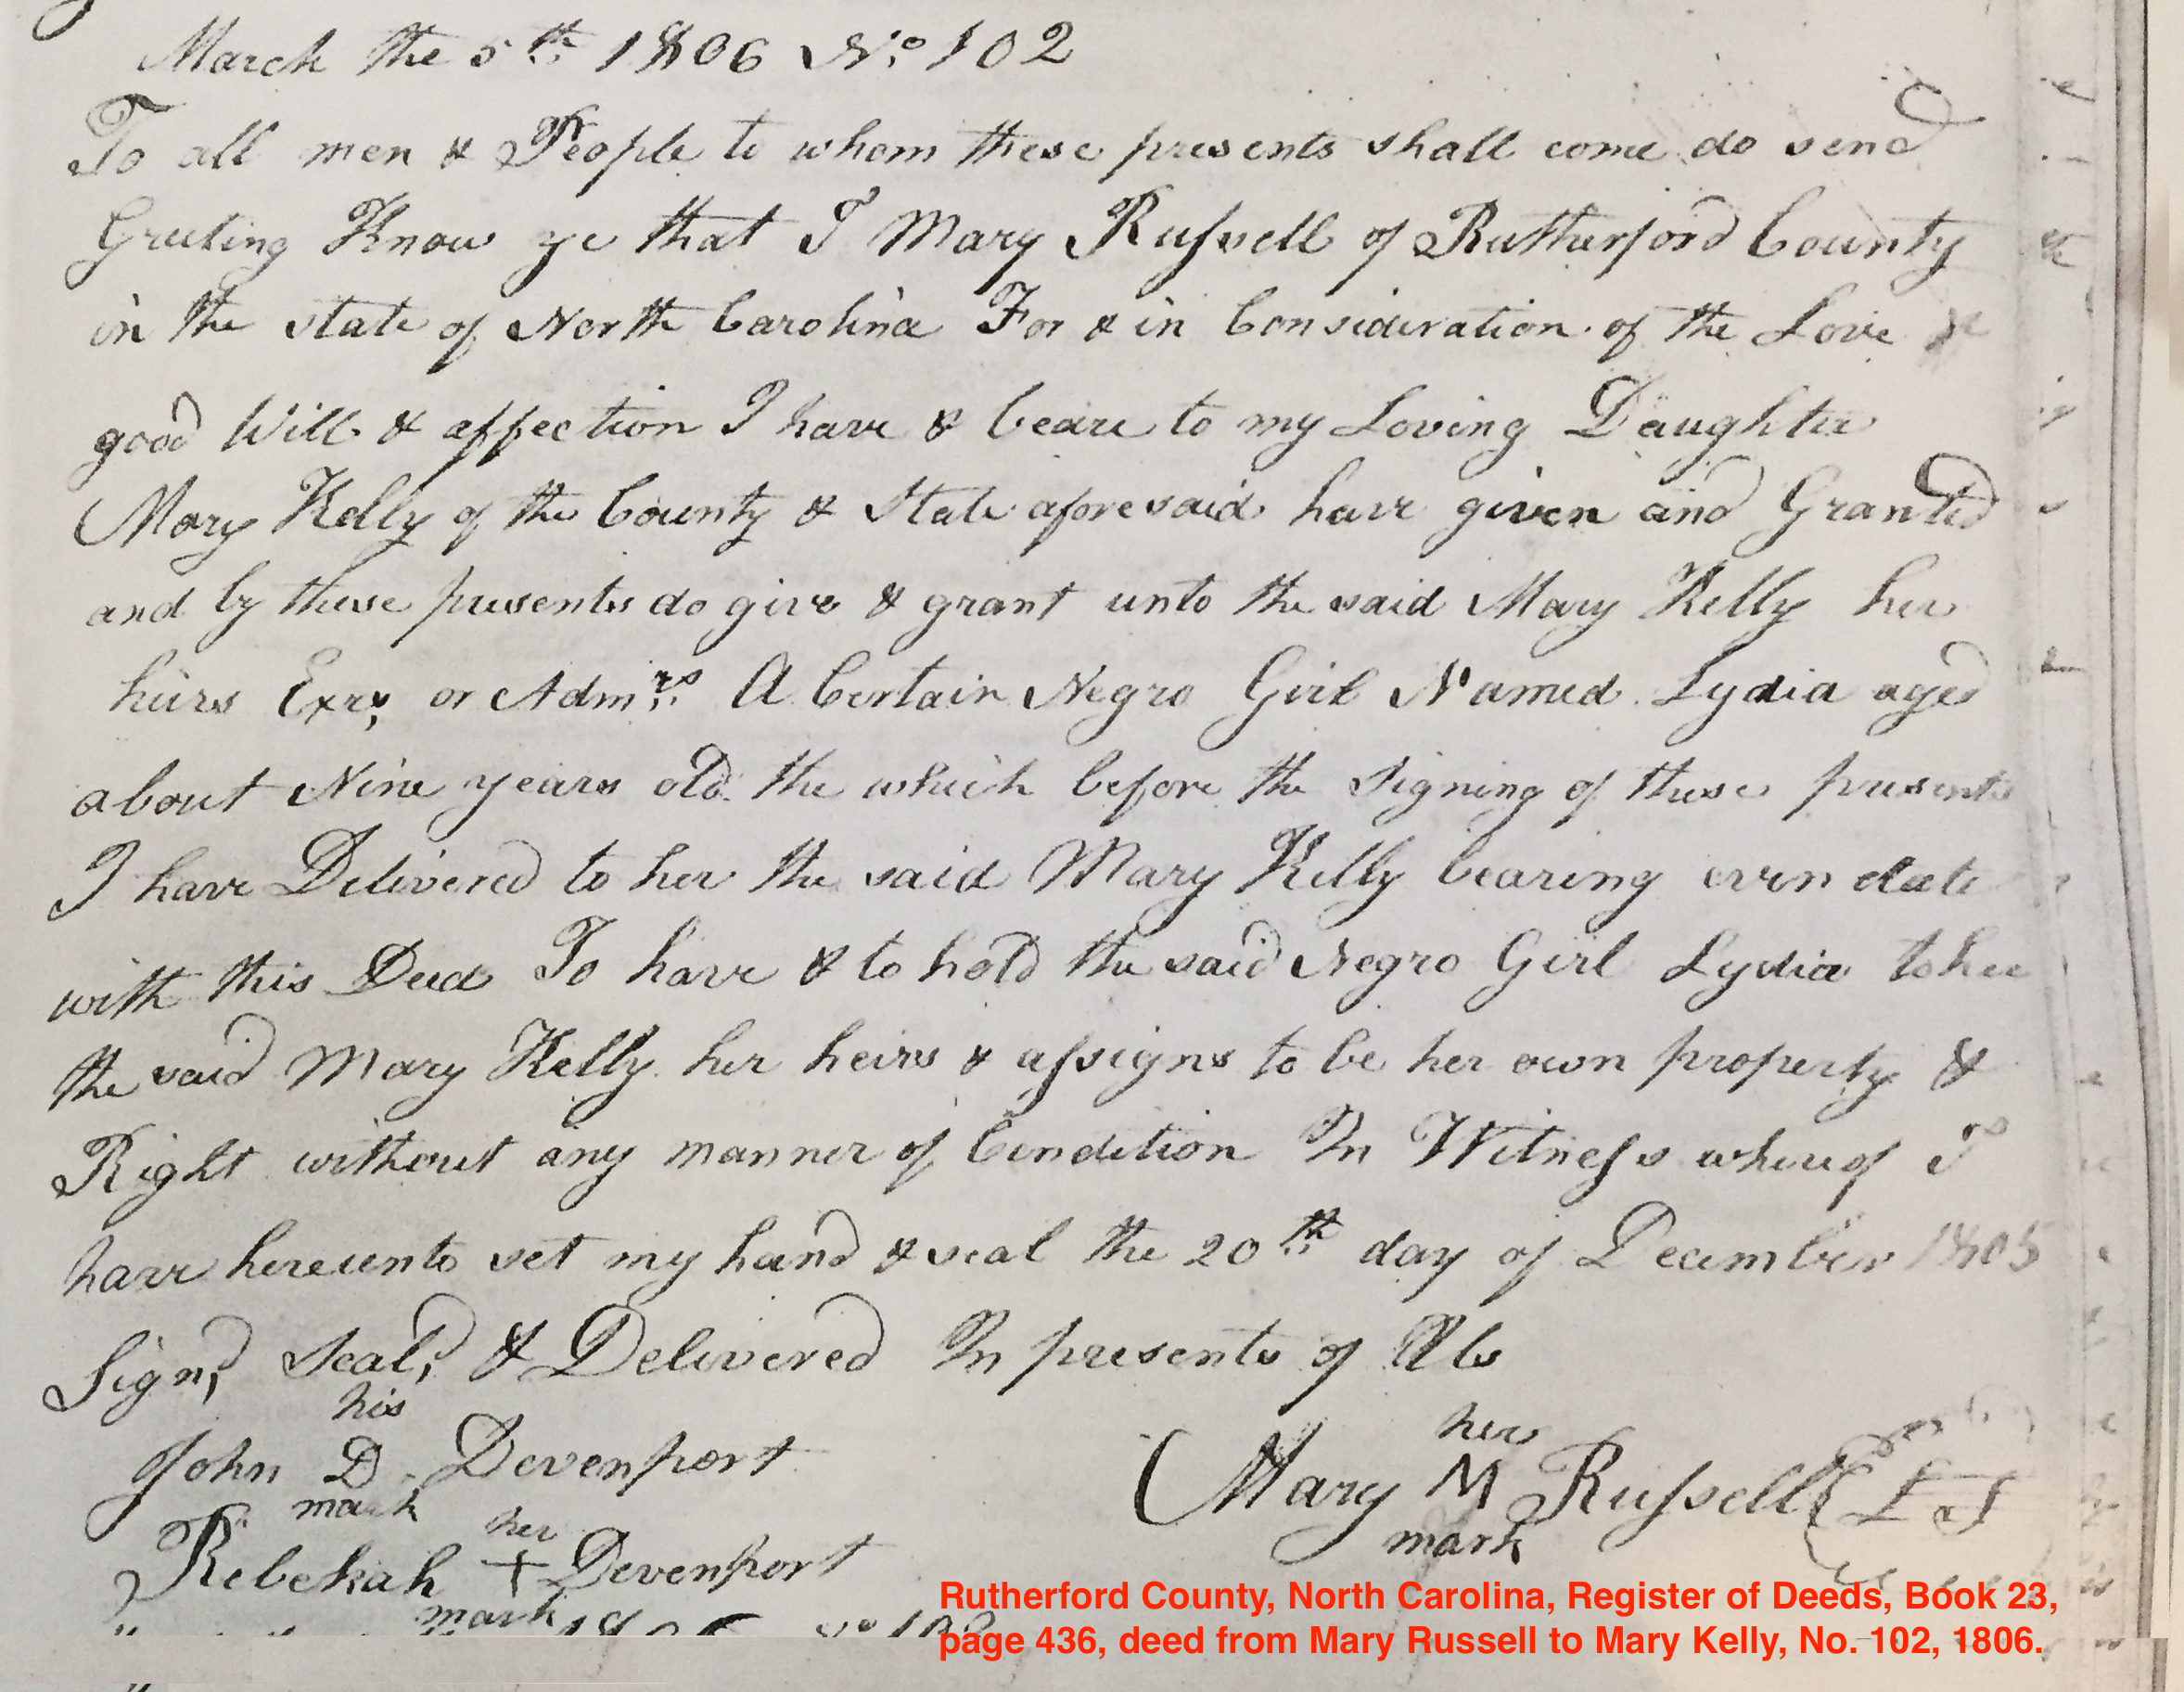 March the 5th 1806 No 102
To all men & People to whom these presents shall come do send
Greeting Know ye that I Mary Russell of Rutherford County
in the state of North Carolina For & in Consideration of the Love &
good Will & affection I have & beare to my Loving Daughter
Mary Kelly of the County & State aforesaid have given and Granted
and by these presents do give & grant unto the said Mary Kelly her
heirs Exrs or Admrs A Certain Negro Girl Named Lydia aged
about Nine years old the which before the signing of these presents
I have Delivered to her the said Mary Kelly bearing even date
with this Deed To have & to hold the said Negro Girl Lydia to her
the said Mary Kelly her heirs & assigns to be her own property &
Right without any manner of Condition In Witness whereof I
have hereunto set my hand & seal the 20th day of December 1805
Signd Seald & Delivered In presents of Us
his
John D. Devenport
mark
her
Mary M Russell {L S}
mark
her
Rebekah + Devenport
mark
Rutherford County, North Carolina, Register of Deeds, Book 23,
page 436, deed from Mary Russell to Mary Kelly, No. 102, 1806.